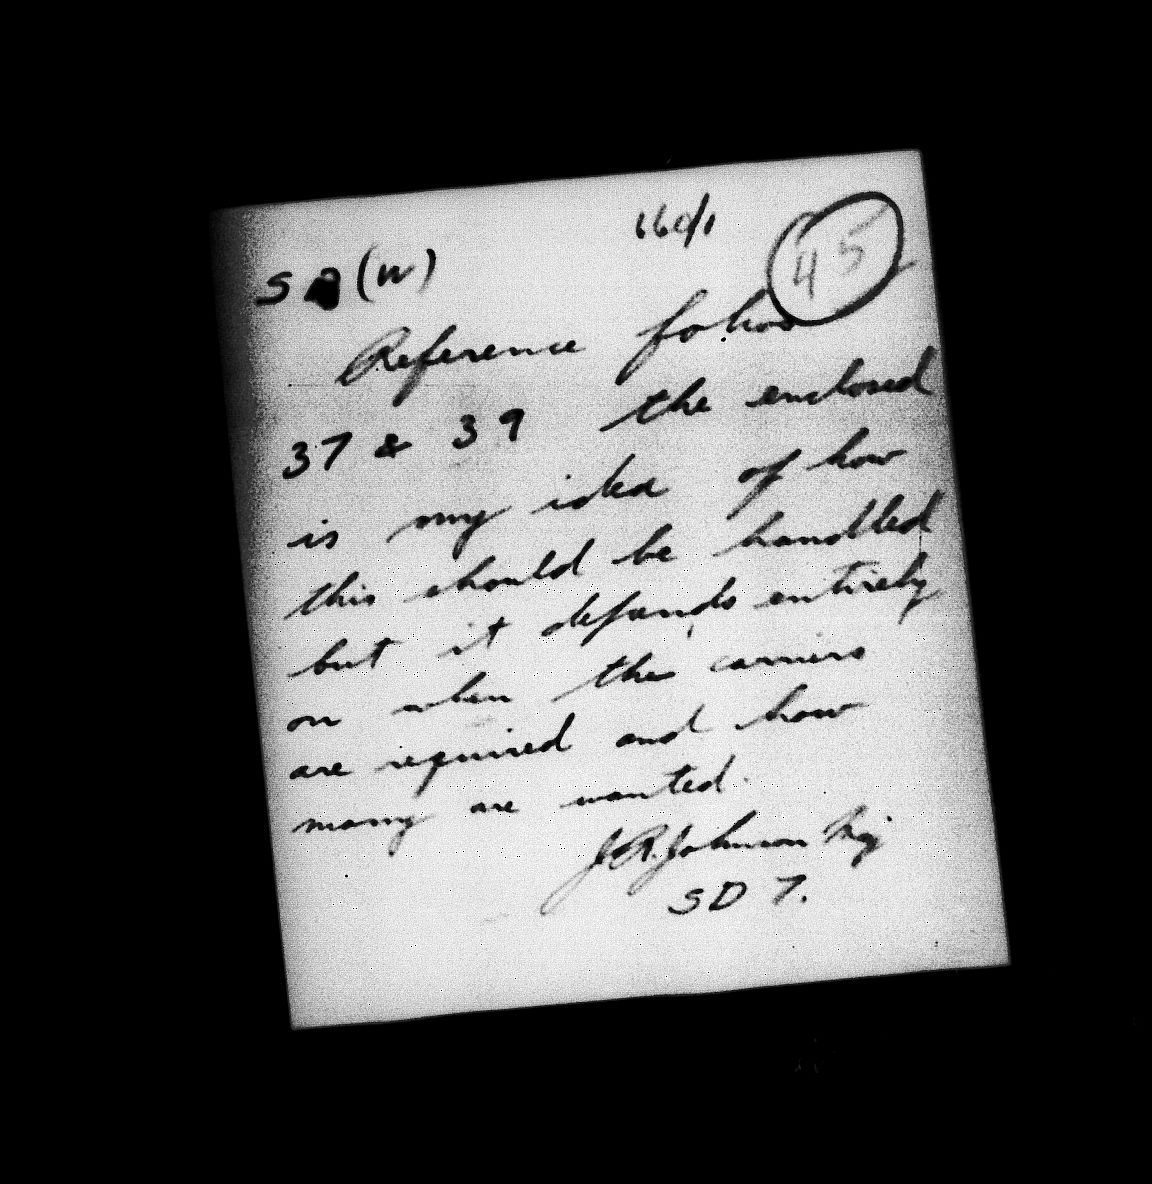 160/1 45
SD (W)
Reference folios
37 & 39 the enclosed
is my idea of how
this should be handled
but it depends entirely
on when the carriers
are required and how
many are wanted.
J.R. Johnson Maj
SD 7.